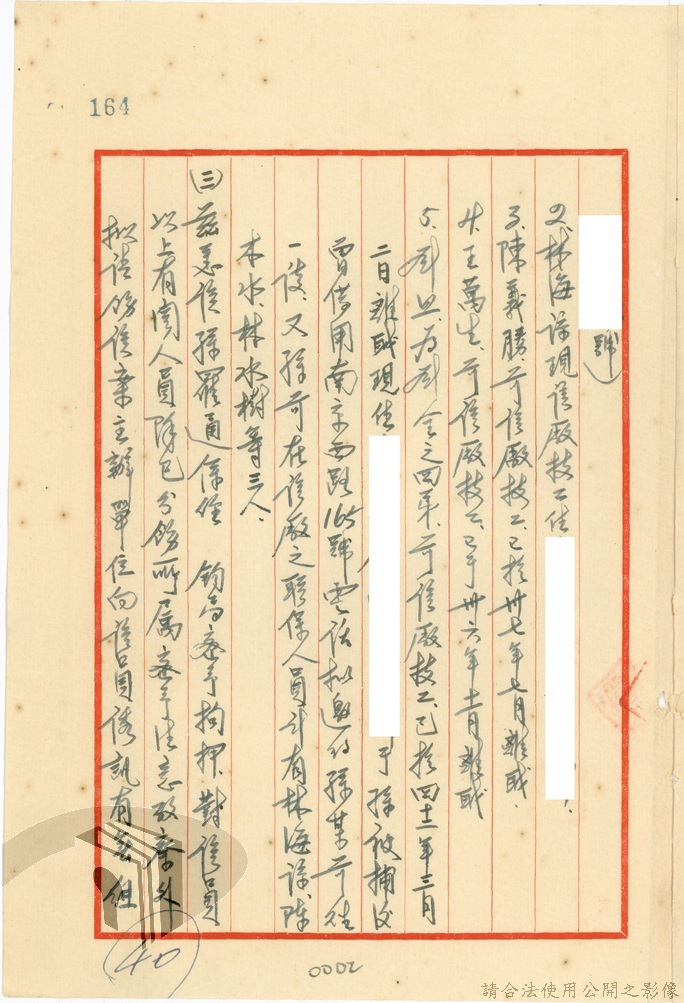 164
號）
2、林海諒現任廠技工住
3、陳義勝、前任廠技工、已於卅七年七月離職、
4、王萬生、前任該廠技工、已于卅六年十一月離職
5、為 令之四弟、前任該廠技工、已於四十二年三月
二日離職現住 于孫被捕後
曾借用南京西路165號電話擬邀約孫某前往
一談、又孫前在該廠之聯保人員計有林海諒陳
木水、林水樹等三人、
(三)茲悉該孫羅通係經 鈞局密予拘押、對該員
以上有關人員除已分飭所屬密予注意政察外
擬請飭該案主辦單位向該員偵訊有無組
40
0002
請合法使用公開之影像